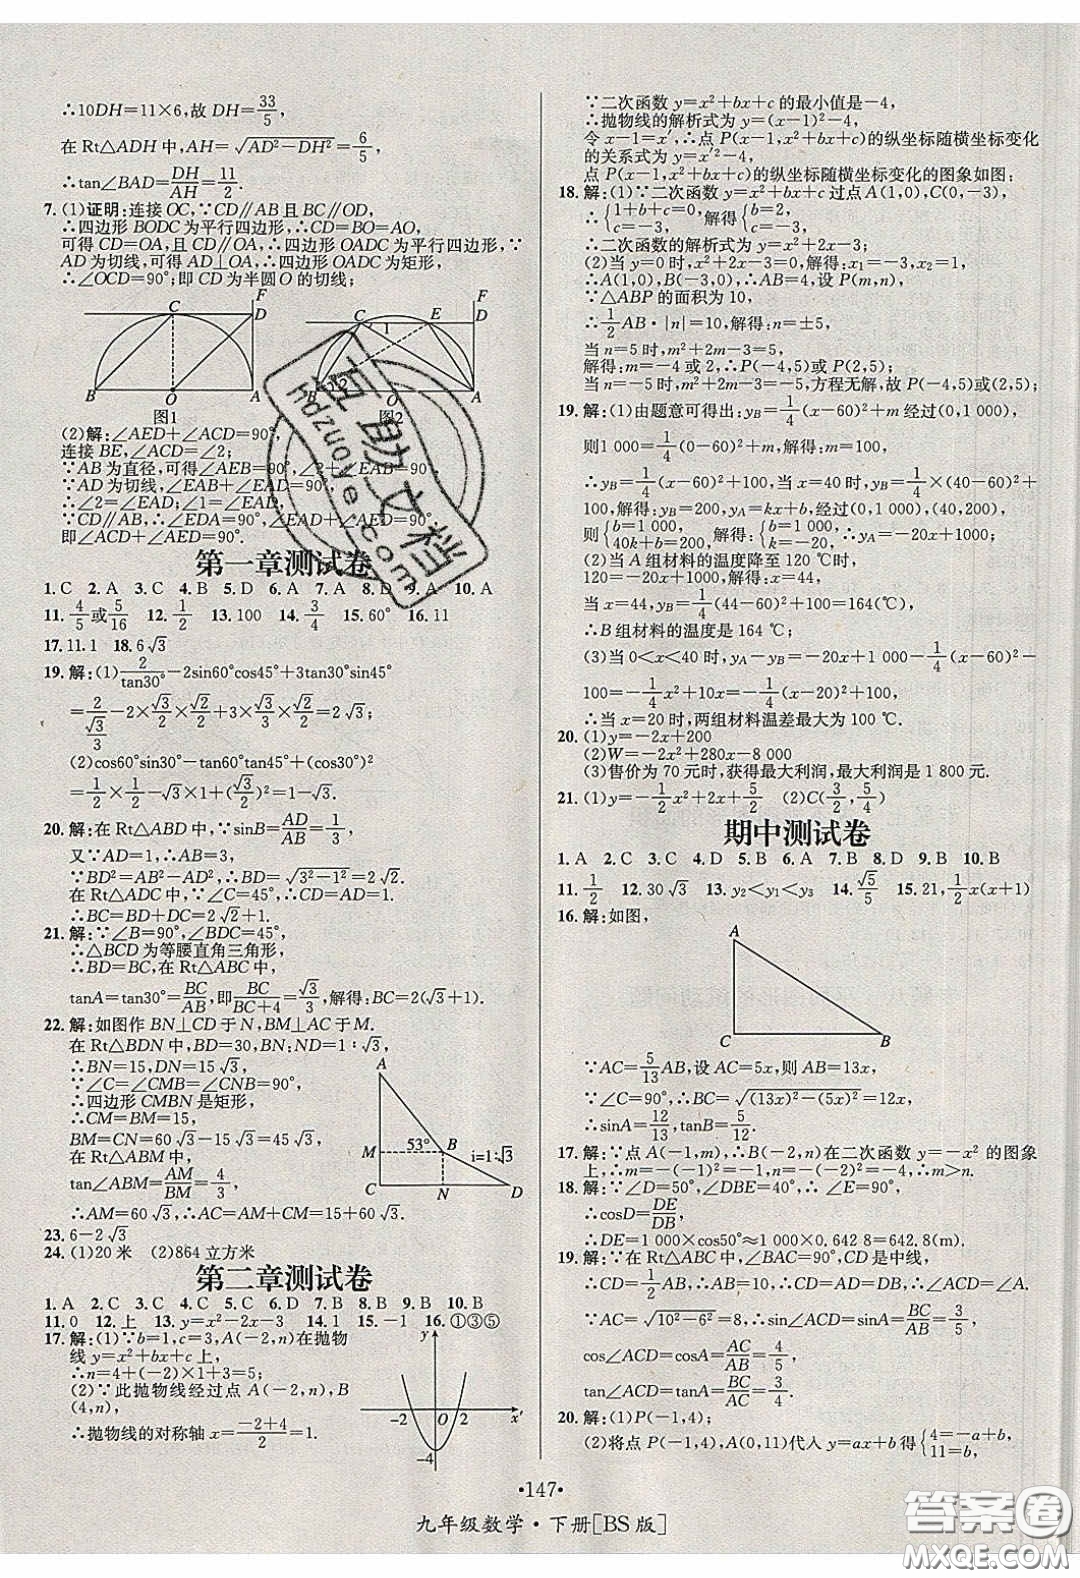 ∴10DH=11×6,故 DH=33/5,
在 Rt△ADH 中,AH=√(AD²-DH²)=6/5,
∴tan∠BAD=DH/AH=11/2.
7. (1)证明:连接 OC,∵CD∥AB 且 BC∥OD,
∴四边形 BODC 为平行四边形,∴CD=BO=AO,
可得 CD=OA,且 CD∥OA,∴四边形 OADC 为平行四边形,∵
AD 为切线,可得 AD⊥OA,∴四边形 OADC 为矩形,
∴∠OCD=90°,即 CD 为半圆 O 的切线;
C F D B O A
图1
C E F D 1 2 B O A
图2
(2)解:∠AED+∠ACD=90°,
连接 BE,∠ACD=∠2;
∵AB 为直径,可得∠AEB=90°,∠2+∠EAB=90°,
∵AD 为切线,∠EAB+∠EAD=90°,
∴∠2=∠EAD,∠1=∠EAD;
∵CD∥AB,∴∠EDA=90°,∠AED+∠EAD=90°,
即∠ACD+∠AED=90°.
第一章测试卷
1. C 2. A 3. C 4. B 5. D 6. A 7. A 8. D 9. A 10. A
11. 4/5或5/16 12. 1/2 13. 100 14. 3/4 15. 60° 16. 11
17. 11.1 18. 6√3
19. 解:(1)2/tan30°-2sin60°cos45°+3tan30°sin45°
=2/(√3/3)-2×√3/2×√2/2+3×√3/3×√2/2=2√3;
(2)cos60°sin30°-tan60°tan45°+(cos30°)²
=1/2×1/2-√3×1+(√3/2)²=1-√3.
20. 解:在 Rt△ABD 中,∵sinB=AD/AB=1/3,
又∵AD=1,∴AB=3,
∵BD²=AB²-AD²,∴BD=√(3²-1²)=2√2.
在 Rt△ADC 中,∵∠C=45°,∴CD=AD=1.
∴BC=BD+DC=2√2+1.
21. 解:∵∠B=90°,∠BDC=45°,
∴△BCD 为等腰直角三角形,
∴BD=BC,在 Rt△ABC 中,
tanA=tan30°=BC/AB,即BC/(BC+4)=√3/3,解得:BC=2(√3+1).
22. 解:如图作 BN⊥CD 于 N,BM⊥AC 于 M.
在 Rt△BDN 中,BD=30,BN:ND=1:√3,
∴BN=15,DN=15√3,
∵∠C=∠CMB=∠CNB=90°,
∴四边形 CMBN 是矩形,
∴CM=BM=15,
BM=CN=60√3-15√3=45√3,
在 Rt△ABM 中,
tan∠ABM=AM/BM=4/3,
∴AM=60√3,∴AC=AM+CM=15+60√3.
A M 53° B i=1:√3 C N D
23. 6-2√3
24. (1)20 米 (2)864 立方米
第二章测试卷
1. A 2. C 3. D 4. C 5. C 6. D 7. B 8. B 9. B 10. B
11. 0 12. 上 13. y=x²-2x-3 14. 1 15. -1 16. ①③⑤
17. 解:(1)∵b=1,c=3,A(-2,n)在抛物
线 y=x²+bx+c 上,
∴n=4+(-2)×1+3=5.
(2)∵此抛物线经过点 A(-2,n),B
(4,n),
∴抛物线的对称轴 x=(-2+4)/2=1.
y -2 O 2 x′ -4
∵二次函数 y=x²+bx+c 的最小值是-4,
∴抛物线的解析式为 y=(x-1)²-4,
令 x-1=x′,∴点 P(x-1,x²+bx+c)的纵坐标随横坐标变化
的关系式为 y=x′²-4,
点 P(x-1,x²+bx+c)的纵坐标随横坐标变化的图象如图;
18. 解:(1)∵二次函数 y=x²+bx+c 过点 A(1,0),C(0,-3),
∴{1+b+c=0, c=-3, 解得{b=2, c=-3,
∴二次函数的解析式为 y=x²+2x-3;
(2)当 y=0 时,x²+2x-3=0,解得:x₁=-3,x₂=1;
∴A(1,0),B(-3,0),∴AB=4,设 P(m,n),
∵△ABP 的面积为 10,
∴1/2AB·|n|=10,解得:n=±5,
当 n=5 时,m²+2m-3=5,
解得:m=-4或 2,∴P(-4,5)或 P(2,5);
当 n=-5 时,m²+2m-3=-5,方程无解,故 P(-4,5)或(2,5);
19. 解:(1)由题意可得出:y_B=1/4(x-60)²+m 经过(0,1 000),
则1 000=1/4(0-60)²+m,解得:m=100,
∴y_B=1/4(x-60)²+100,当 x=40 时,y_B=1/4×(40-60)²+
100,解得:y_B=200,y_A=kx+b,经过(0,1 000),(40,200),
则{b=1 000, 40k+b=200, 解得:{b=1 000, k=-20, ∴y_A=-20x+1 000;
(2)当 A 组材料的温度降至 120℃时,
120=-20x+1 000,解得:x=44,
当 x=44,y_B=1/4(44-60)²+100=164(℃),
∴B 组材料的温度是 164℃;
(3)当 0<x<40 时,y_A-y_B=-20x+1 000-1/4(x-60)²-
100=-1/4x²+10x=-1/4(x-20)²+100,
∴当 x=20 时,两组材料温差最大为 100℃.
20. (1)y=-2x+200
(2)W=-2x²+280x-8 000
(3)售价为 70 元时,获得最大利润,最大利润是 1 800 元.
21. (1)y=-1/2x²+2x+5/2 (2)C(3/2,5/4)
期中测试卷
1. A 2. C 3. C 4. D 5. B 6. A 7. B 8. D 9. B 10. B
11. 1/2 12. 30√3 13. y₂<y₁<y₃ 14. √5/5 15. 21,1/2x(x+1)
16. 解:如图,
A C B
∵AC=5/13AB,设 AC=5x,则 AB=13x,
∵∠C=90°,∴BC=√((13x)²-(5x)²)=12x,
∴sinA=12/13,tanB=5/12.
17. 解:∵点 A(-1,m),B(-2,n)在二次函数 y=-x² 的图象
上,∴m=-(-1)²=-1,n=-(-2)²=-4,∴m>n.
18. 解:∵∠D=50°,∠DBE=40°,∴∠E=90°,
∴cosD=DE/DB,
∴DE=1 000×cos50°≈1 000×0.642 8=642.8(m).
19. 解:∵在 Rt△ABC 中,∠BAC=90°,CD 是中线,
∴CD=1/2AB,∴AB=10,∴AD=CD,∴∠ACD=∠A.
∵AC=√(10²-6²)=8,∴sin∠ACD=sinA=BC/AB=3/5,
cos∠ACD=cosA=AC/AB=4/5,
tan∠ACD=tanA=BC/AC=3/4.
20. 解:(1)P(-1,4);
(2)将点 P(-1,4),A(0,11)代入 y=ax+b 得{4=-a+b, 11=b,
•147•
九年级数学·下册[BS版]
互助文档
hdzuoye.com
答案圈
MXQE.COM